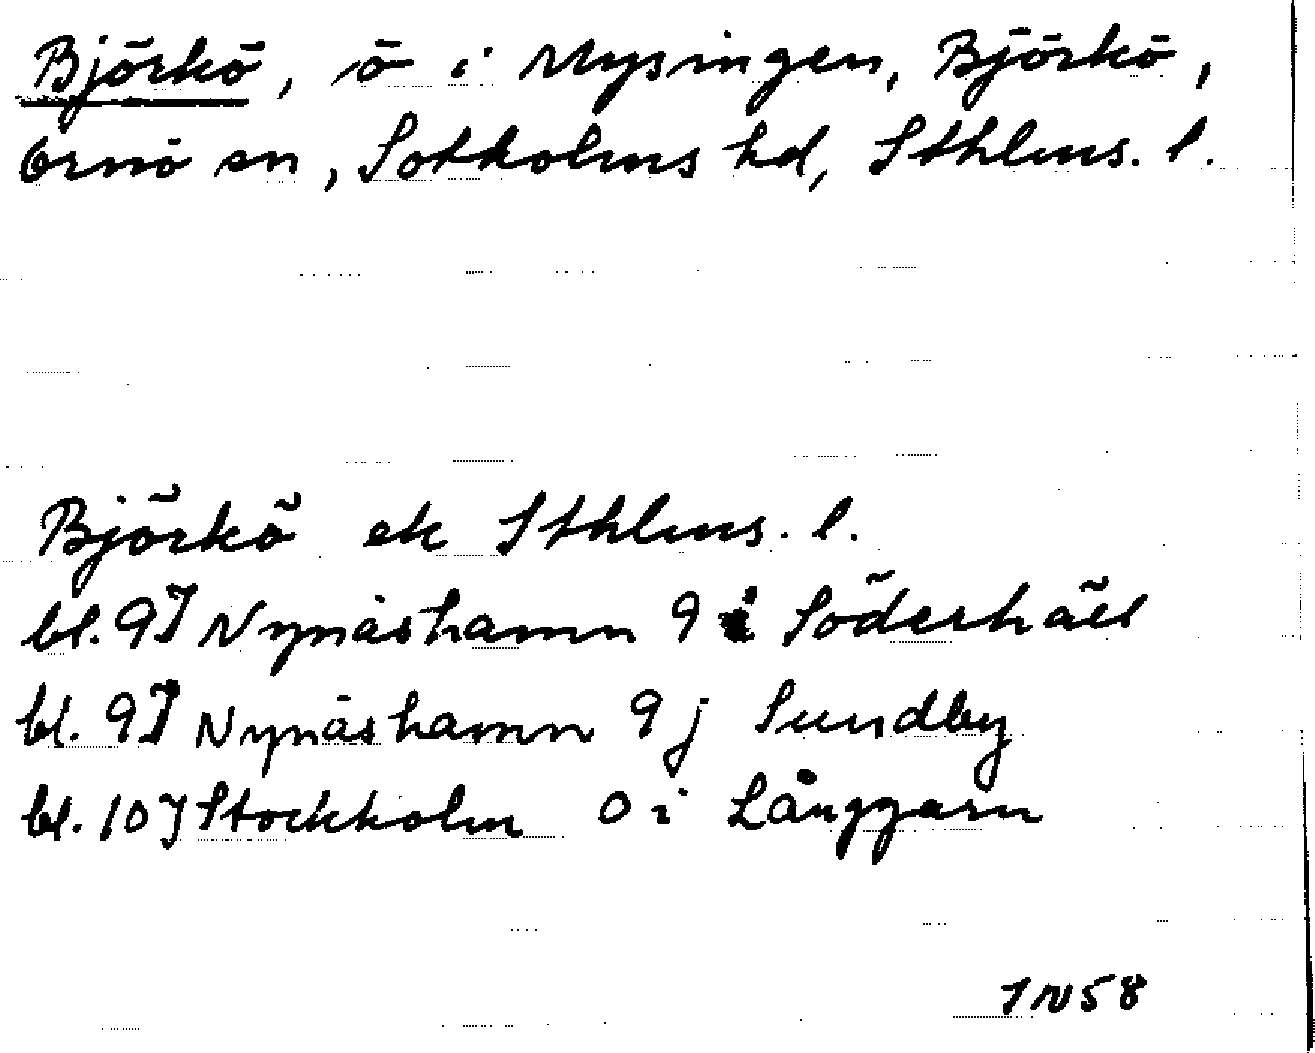 Björkö, ö i Mysingen, Björkö,
Ornö sn, Sotholms hd, Sthlms. l.
Björkö ek Sthlms. l.
bl. 9J Nynäshamn 9 i Söderhäll
bl. 9J Nynäshamn 9 j Sundby
bl. 10J Stockholm 0 i Långgarn
IN58